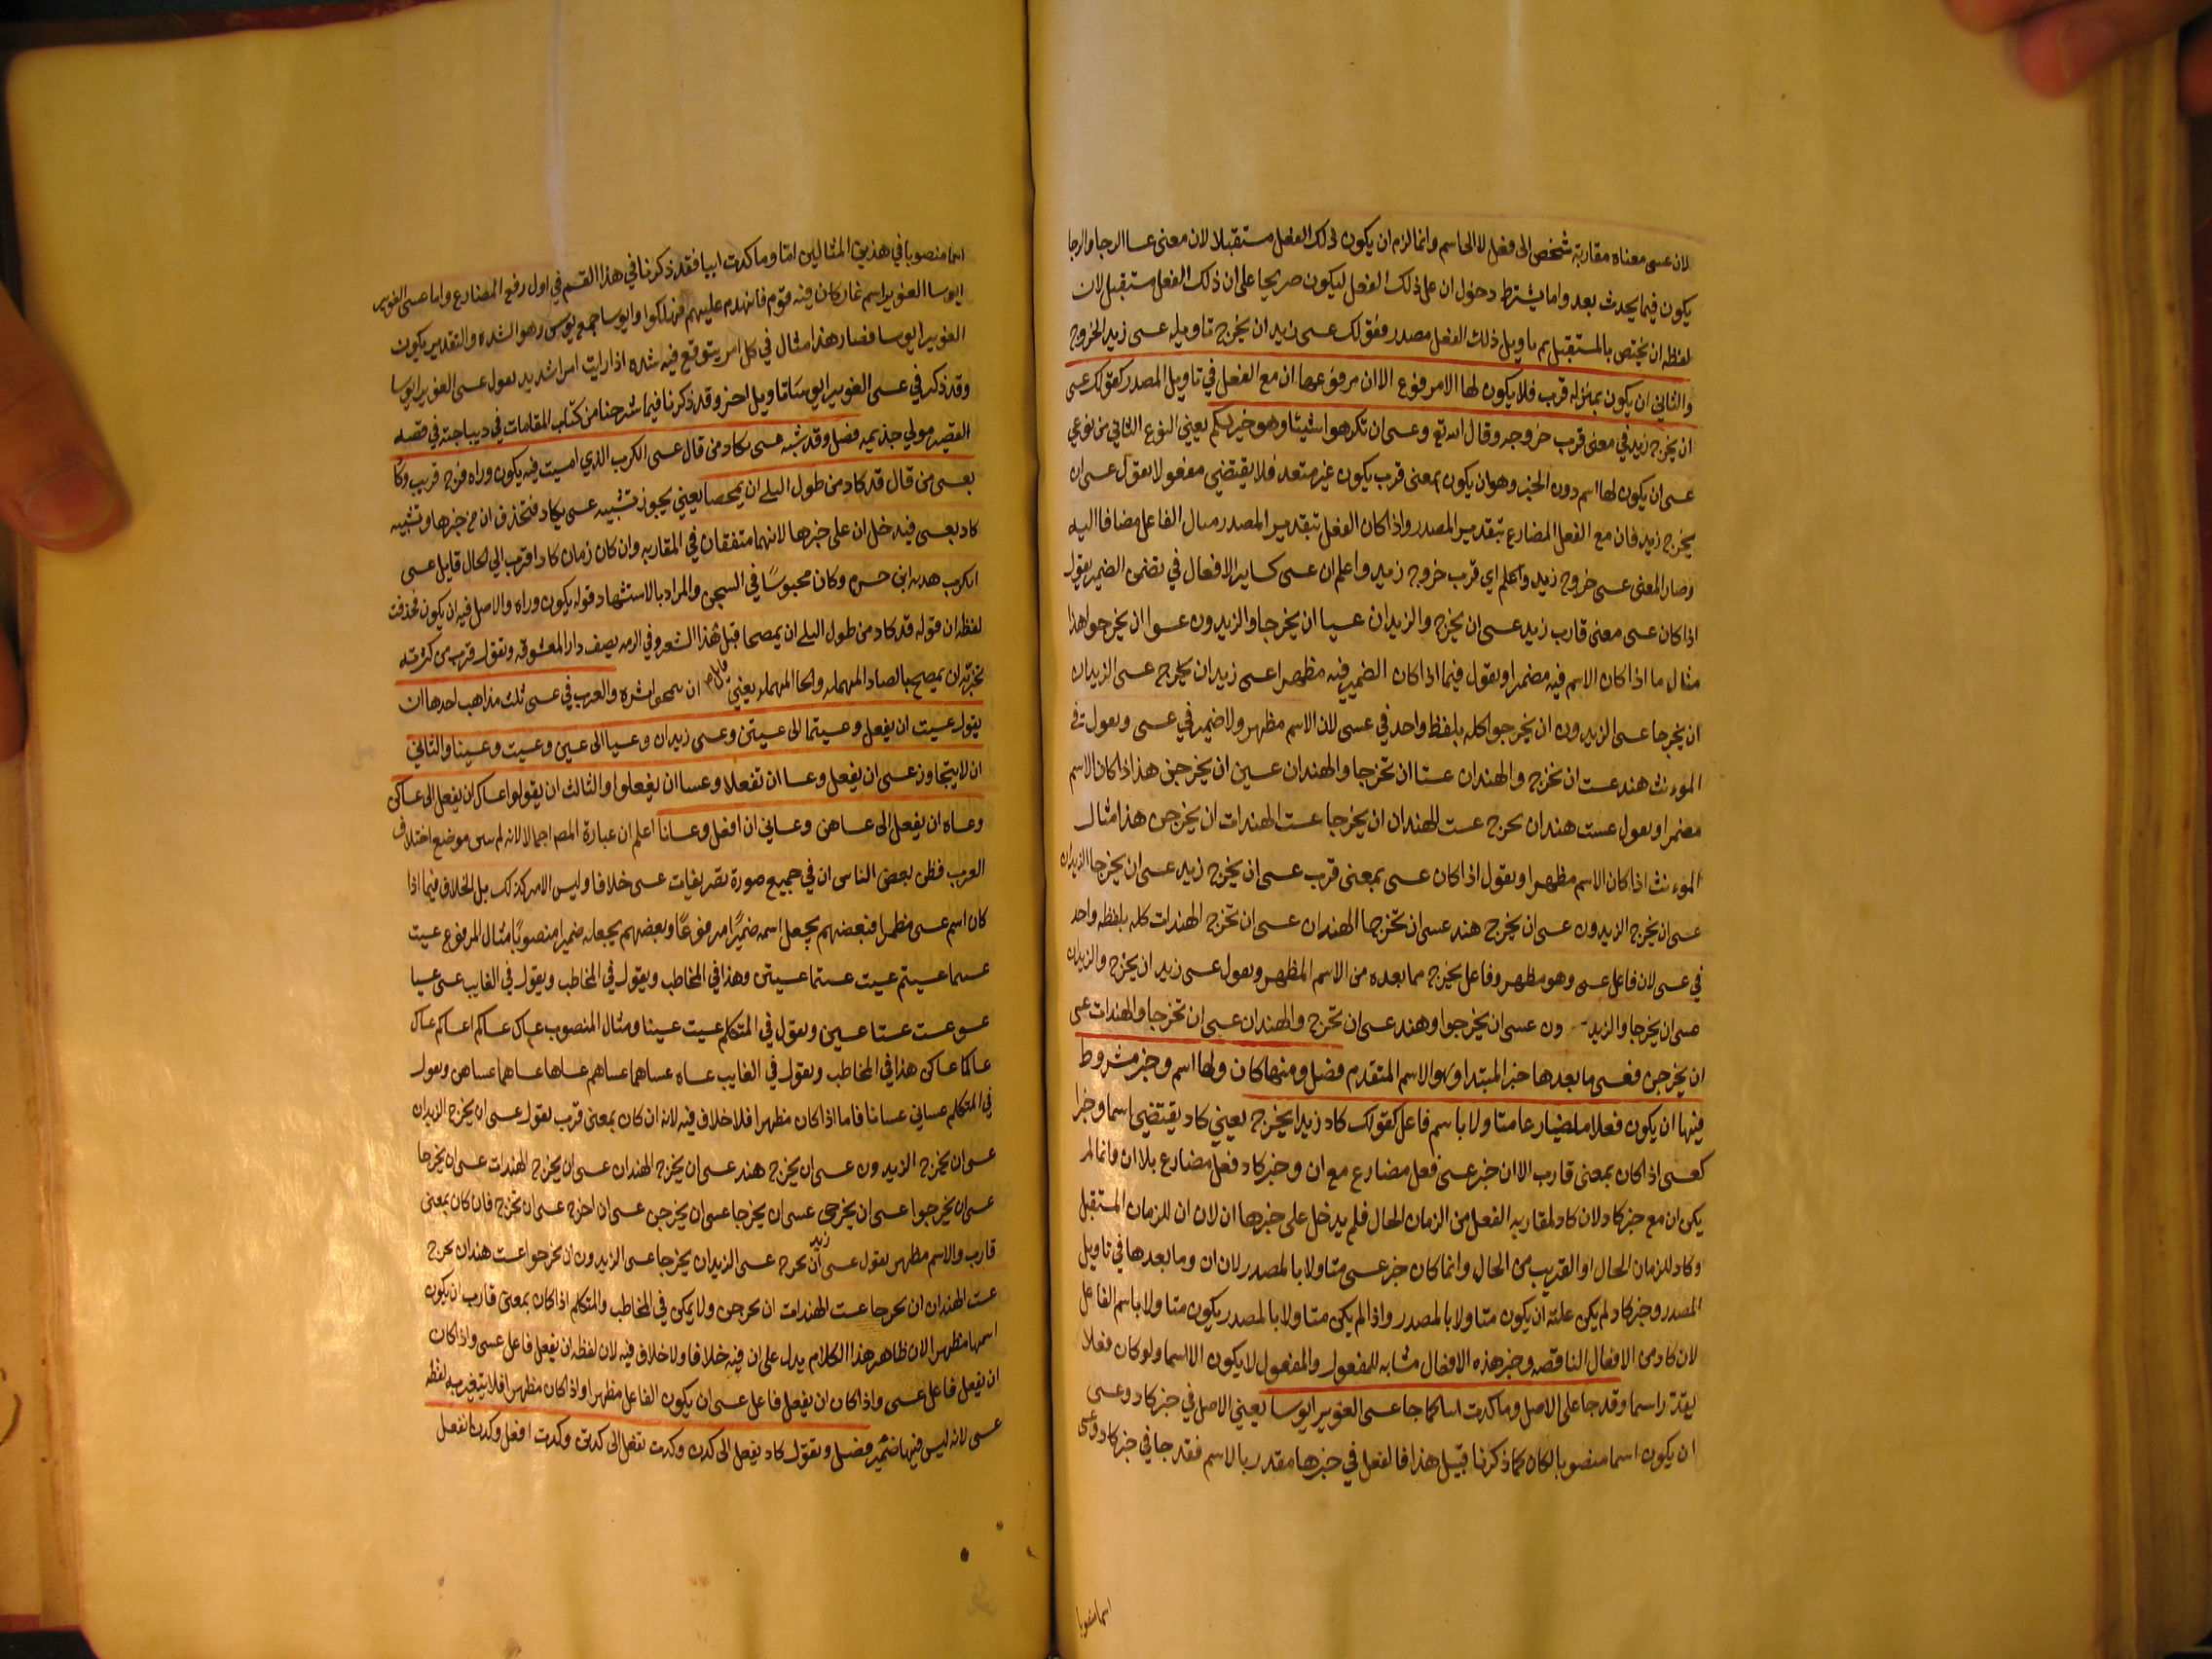 لان عسى معناه مقاربة شخص الى فعل لا الى اسم وانما لزم ان يكون ذلك الفعل مستقبلا لان معنى عسا الرجا والرجا
يكون فيما يحدث بعد واما يشترط دخول ان على ذلك الفعل ليكون صريحا على ان ذلك الفعل مستقبل لان
لفظه ان يختص بالمستقبل ثم تاويل ذلك الفعل مصدر فقولك عسى زيد ان يخرج تاويله عسى زيد الخروج
والثاني ان يكون بمنزله قرب فلا يكون لها الا مرفوع الا ان مرفوعها ان مع الفعل في تاويل المصدر كقولك عسى
ان يخرج زيد في معنى قرب خروجه وقال الله تع وعسى ان تكرهوا شيئا وهو خير لكم يعني النوع الثاني من نوعي
عسى ان يكون لها اسم دون الخبر وهو ان يكون بمعنى قرب يكون غير متعد فلا يقتضي مفعولا تقول عسى ان
يخرج زيد فان مع الفعل المضارع بتقدير المصدر واذا كان الفعل بتقدير المصدر الفاعل مضافا اليه
وصار المعنى عسى خروج زيد واعلم اي قرب خروج زيد واعلم ان عسى كساير الافعال في تضمن الضمير تقول
اذا كان عسى معنى قارب زيد عسى ان يخرج والزيدان عسيا ان يخرجا والزيدون عسوا ان يخرجوا هذا
مثال ما اذا كان الاسم فيه مضمرا وتقول فيما اذا كان الضمير فيه مظهرا عسى زيد ان يخرج عسى الزيدان
ان يخرجا عسى الزيدون ان يخرجوا كله بلفظ واحد في عسى لان الاسم مظهر ولا ضمير في عسى وتقول في
الموءنث هند عست ان تخرج والهندان عستا ان تخرجا والهندات عسين ان يخرجن هذا اذا كان الاسم
مضمرا وتقول عست هند ان تخرج عست الهندان ان يخرجا عست الهندات ان يخرجن هذا مثال
الموءنث اذا كان الاسم مظهرا وتقول اذا كان عسى بمعنى قرب عسى ان يخرج زيد عسى ان يخرجا الزيدان
عسى ان يخرج الزيدون عسى ان يخرج هند عسى ان تخرجا الهندان عسى ان تخرج الهندات كله بلفظه واحد
في عسى لان فاعل عسى وهو مظهر وفاعل يخرج مما بعده من الاسم المظهر وتقول عسى زيد ان يخرج والزيدان
عسى ان يخرجا والزيدون عسى ان يخرجوا وهند عسى ان تخرج والهندان عسى ان تخرجا والهندات عسى
ان يخرجن فعسى ما بعدها خبر المبتدا وهو الاسم المتقدم فصل ومنها كان ولها اسم وخبر مشروط
فيها ان يكون فعلا مضارعا متاولا باسم فاعل كقولك كاد زيد يخرج يعني كاد يقتضي اسما وخبرا
كعسى اذا كان بمعنى قارب الا ان خبر عسى فعل مضارع مع ان وخبر كاد فعل مضارع بلا ان وانما لم
يكن ان مع خبر كاد لان كاد لمقاربه الفعل من الزمان الحال فلم يدخل على خبرها ان لان ان للزمان المستقبل
وكاد للزمان الحال او القريب من الحال وانما كان خبر عسى متاولا بالمصدر لان ان وما بعدها في تاويل
المصدر وخبر كاد لم يكن علته ان يكون متاولا بالمصدر واذا لم يكن متاولا بالمصدر يكون متاولا باسم الفاعل
لان كاد من الافعال الناقصه وخبر هذه الافعال مشابه للمفعول والمفعول لا يكون الا اسما ولو كان فعلا
يقدر اسما وقد جا على الاصل وما كدت ايبا كما جا عسى الغوير ابوسا يعني الاصل في خبر كاد وعسى
ان يكون اسما منصوبا لكان كما ذكرنا قبيل هذا فالفعل في خبرها مقدر بالاسم فقد جا في خبر كاد وعسى
اسما منصوبا
اسما منصوبا في هذين المثالين اما وما كدت ايبا فقد ذكرنا في هذا القسم في اول رفع المضارع واما عسى الغوير
ابوسا الغوير اسم غار كان فيه قوم فانهدم عليهم فهلكوا وابوسا جمع بوس وهو الشده والتقدير يكون
الغوير ابوسا فصار هذا مثال في كل امر يتوقع فيه شده اذا رايت امرا شديد تقول عسى الغوير ابوسا
وقد ذكر في عسى الغوير ابوسا تاويل اخر وقد ذكرنا فيما شرحنا من كتاب المقامات في ديباجته في قصه
القصير مولي جذيمه فصل وقد شبه عسى بكاد من قال عسى الكرب الذي امسيت فيه يكون وراه فرج قريب وكا
بعسى من قال قد كاد من طول البلى ان يمحصا يعني يجوز تشبيه عسى بكاد فتحذف ان من خبرها وتشبيه
كاد بعسى فيدخل ان على خبرها لانهما متفقان في المقاربه وان كان زمان كاد اقرب الى الحال قايل عسى
الكرب هدبه ابن حسرم وكان محبوسا في السجن والمراد بالاستشهاد قوله يكون وراه والاصل فيه ان يكون فحذفت
لفظه ان قوله قد كاد من طول البلى ان يمصحا قبل هذا الشعر وفي الرمه يصف دار المعشوقه وتقول قرب من كثرته
ان يمصح بالصاد المهمله والحا المهمله يعني ان يمحو اثره والعرب في عسى ثلث مذاهب احدها ان
يقول عسيت ان يفعل وعسيتما الى عسيتن وعسى زيد ان وعسيا الى عسين وعسيت وعسينا والثاني
ان لا يتجاوز عسى ان يفعل وعسا ان تفعلا وعسا ان يفعلوا والثالث ان يقولوا عساك ان يفعل الى عساكن
وعساه ان يفعل الى عساهن وعساني ان افعل وعسانا اعلم ان عبارة المص اجمالا لانه لم يبين موضع اختلاف
العرب فظن بعض الناس ان في جميع صورة تصريفات عسى خلافا وليس الامر كذلك بل الخلاف فيما اذا
كان اسم عسى فبعضهم يجعل اسمه ضميرا مرفوعا وبعضهم يجعله ضميرا منصوبا مثال المرفوع عسيت
عسيتما عسيتم عسيت عستما عسيتن وهذا في المخاطب ويقول في المخاطب ويقول في الغايب عسى عسيا
عسو عست عستا عسين وتقول في المتكلم عسيت عسينا ومثال المنصوب عساك عساكما عساكم عساك
عساكما عساكن هذا في المخاطب وتقول في الغايب عساه عساهما عساهم عساها عساهما عساهن وتقول
في المتكلم عساني عسانا فاما اذا كان مظهرا فلا خلاف فيه لانه ان كان بمعنى قرب تقول عسى ان يخرج الزيدان
عسى ان يخرج الزيدون عسى ان يخرج هند عسى ان يخرج الهندان عسى ان يخرج الهندات عسى ان يخرجا
عسى ان يخرجوا عسى ان يخرجى عسى ان يخرجا عسى ان يخرجن عسى ان اخرج عسى ان نخرج فان كان بمعنى
قارب والاسم مظهر تقول عسى زيد ان يخرج عسى الزيدان يخرجا عسى الزيدون ان يخرجوا عست هند ان تخرج
عست الهندان ان تخرجا عست الهندات ان يخرجن ولا يمكن في المخاطب والمتكلم اذا كان بمعنى قارب ان يكون
اسمها مظهرا لان ظاهر هذا الكلام يدل على ان فيه خلافا ولا خلاف فيه لان لفظه ان يفعل فاعل عسى واذا كان
ان يفعل فاعل عسى واذا كان ان يفعل فاعل عسى ان يكون الفاعل مظهرا واذا كان مظهرا فلا يتغير به لفظ
عسى لانه ليس فيها ضمير فصل وتقول كاد يفعل الى كدن وكدت تفعل الى كدتن وكدت افعل وكدنا نفعل